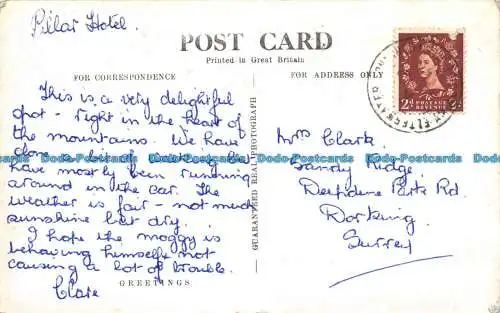 Pillar Hotel.
POST CARD
Printed in Great Britain
FOR CORRESPONDENCE
FOR ADDRESS ONLY
This is a very delightful
spot - right in the heart of
the mountains. We have
done a bit of walking but
have mostly been running
around in the car. The
weather is fair - not much
sunshine but dry.
I hope the moggy is
behaving himself & not
causing a lot of trouble.
Clare
GREETINGS
GUARANTEED REAL PHOTOGRAPH
Mrs Clark,
Sandy Ridge,
Deepdene Park Rd
Dorking,
Surrey
POSTAGE
REVENUE
2d 2d
Dodo-Postcards Dodo-Postcards Dodo-Postcards